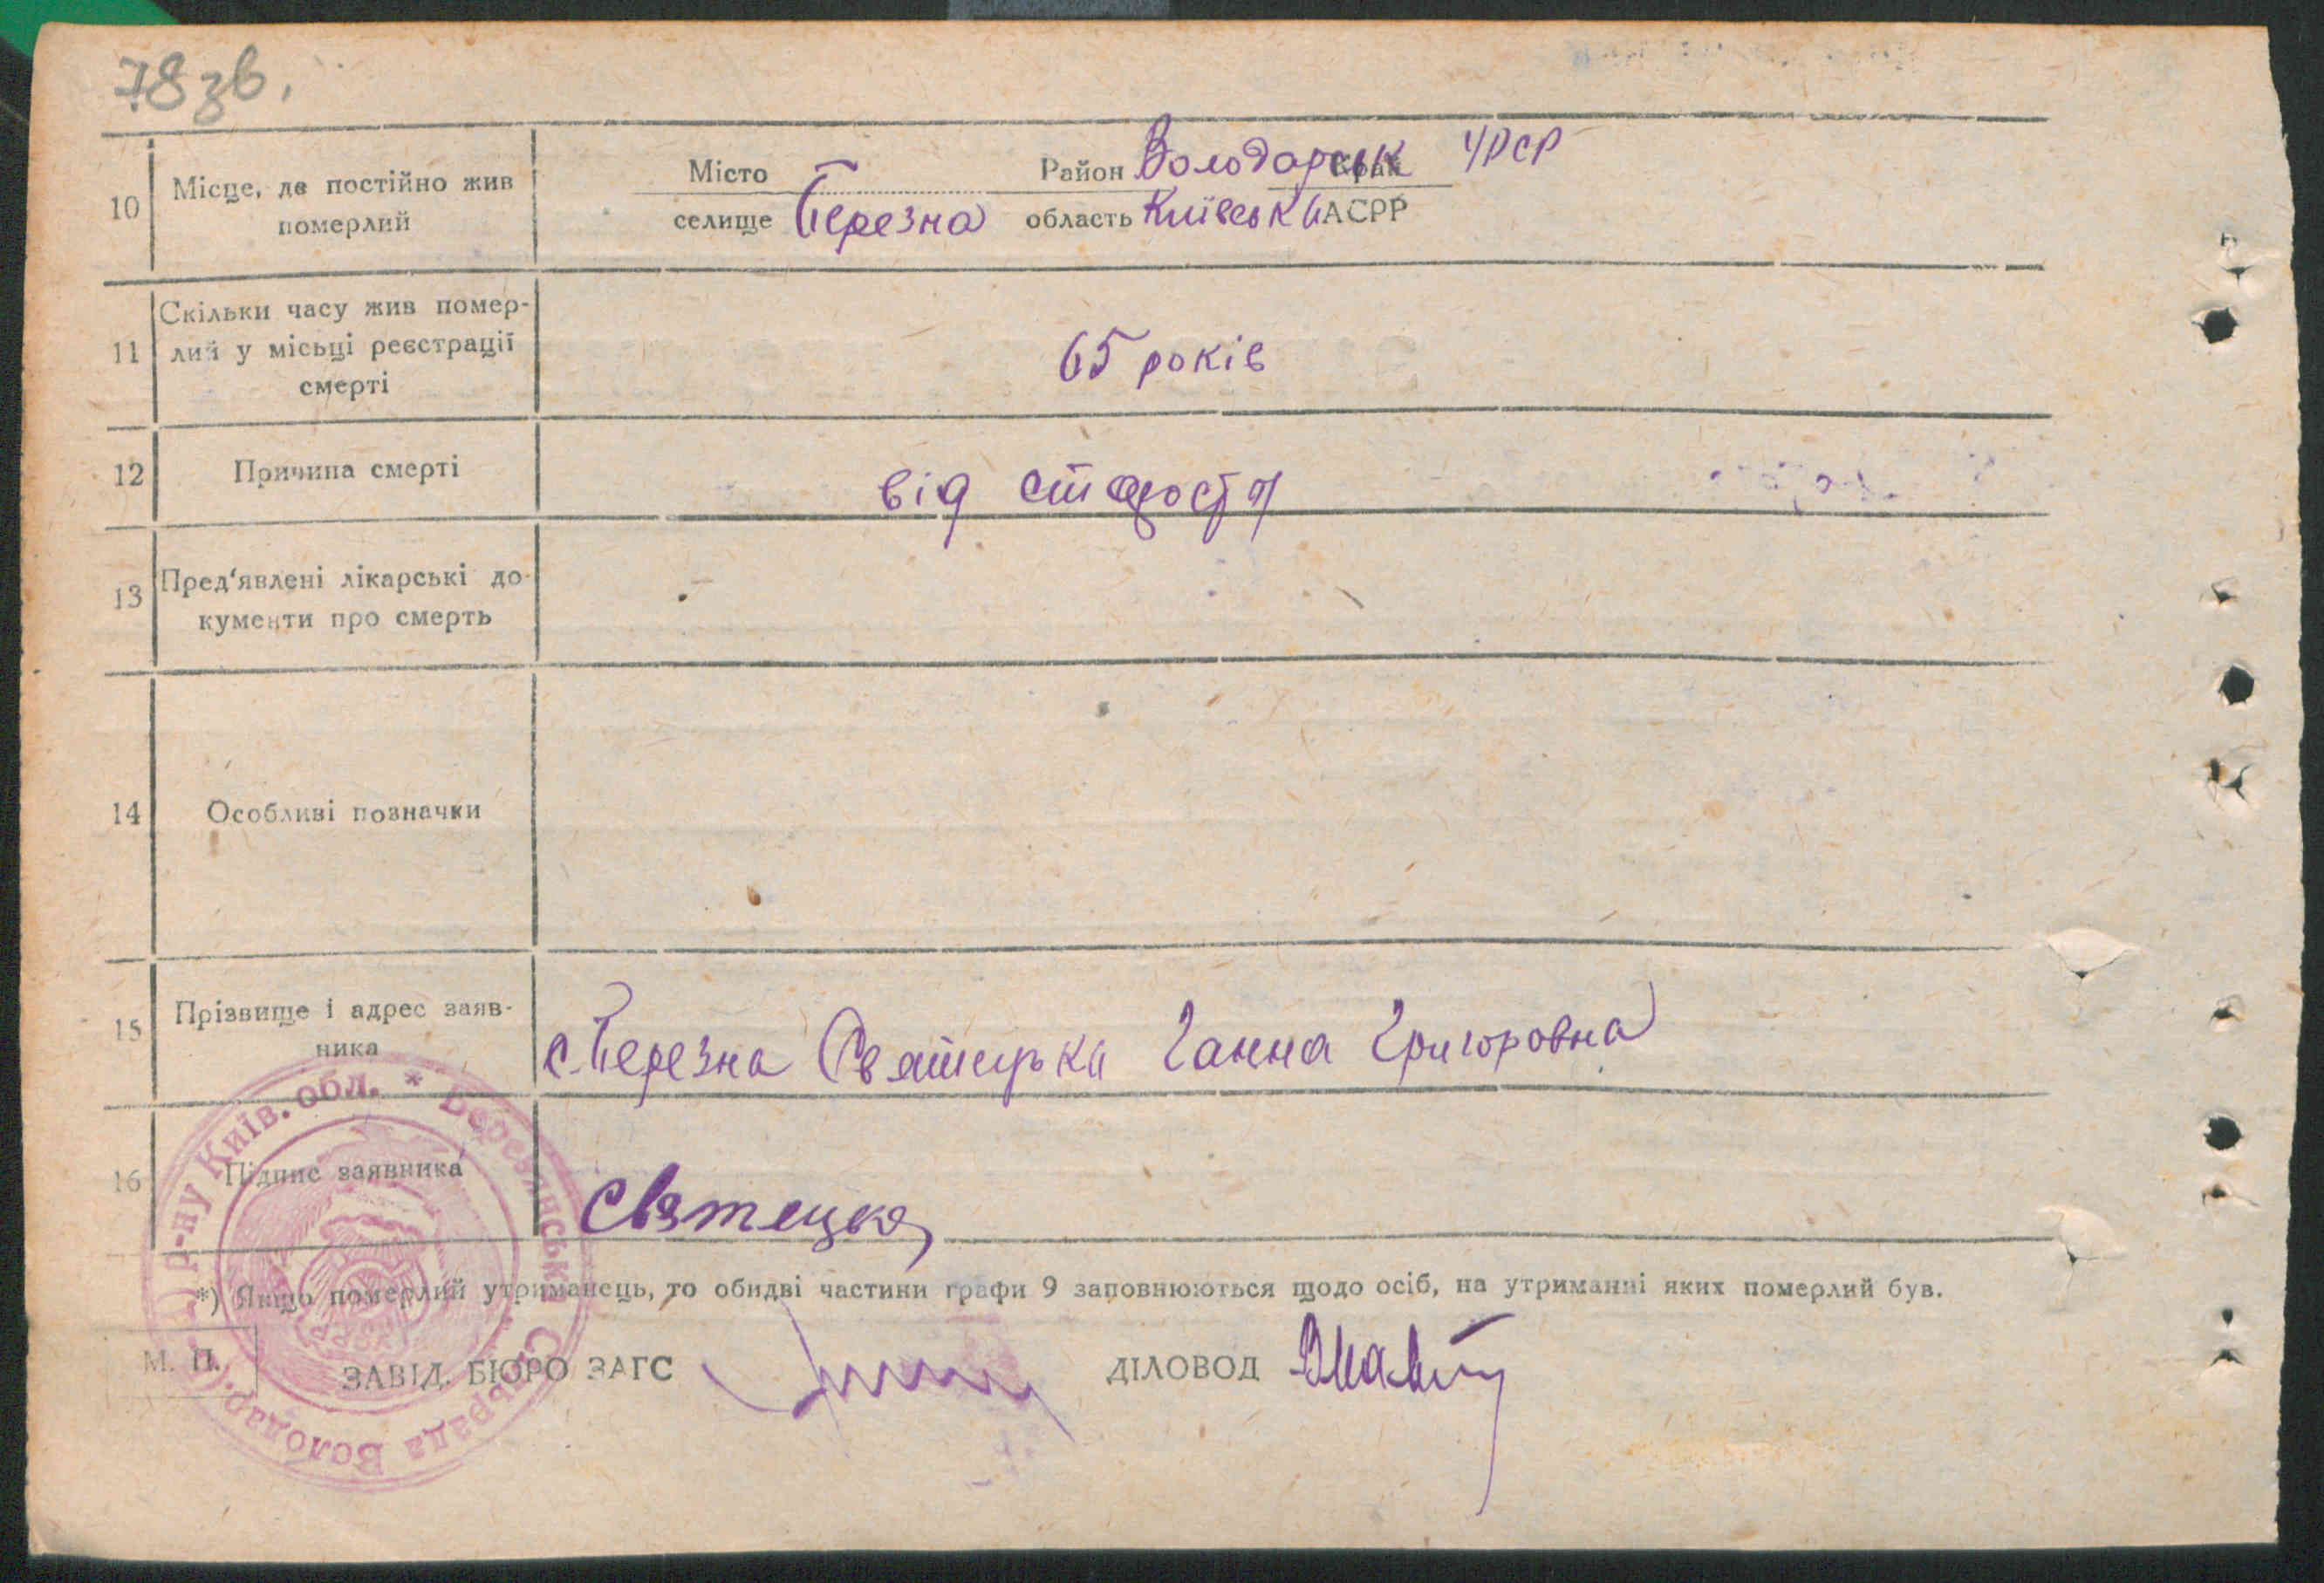 78 зв.
10 Місце, де постійно жив померлий
Місто
селище Березна
Район Володарськ Край УРСР
область Київська АСРР
11 Скільки часу жив помер-
лий у місьці реєстрації
смерті
65 років
12 Причина смерті
від старости
13 Пред'явлені лікарські до-
кументи про смерть
14 Особливі позначки
15 Прізвище і адрес заяв-
ника
с. Березна Святецька Ганна Григоровна
16 Підпис заявника
Святецка
*) Якщо померлий утриманець, то обидві частини графи 9 заповнюються щодо осіб, на утриманні яких померлий був.
М. П.
ЗАВІД. БЮРО ЗАГС
ДІЛОВОД
Березянська Сільрада Володар. р-ну Київ. обл. *